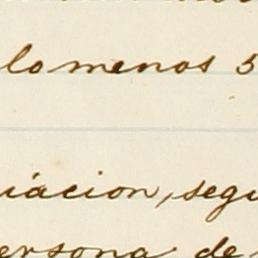 lo menos 5
iacion, segu
ersona de